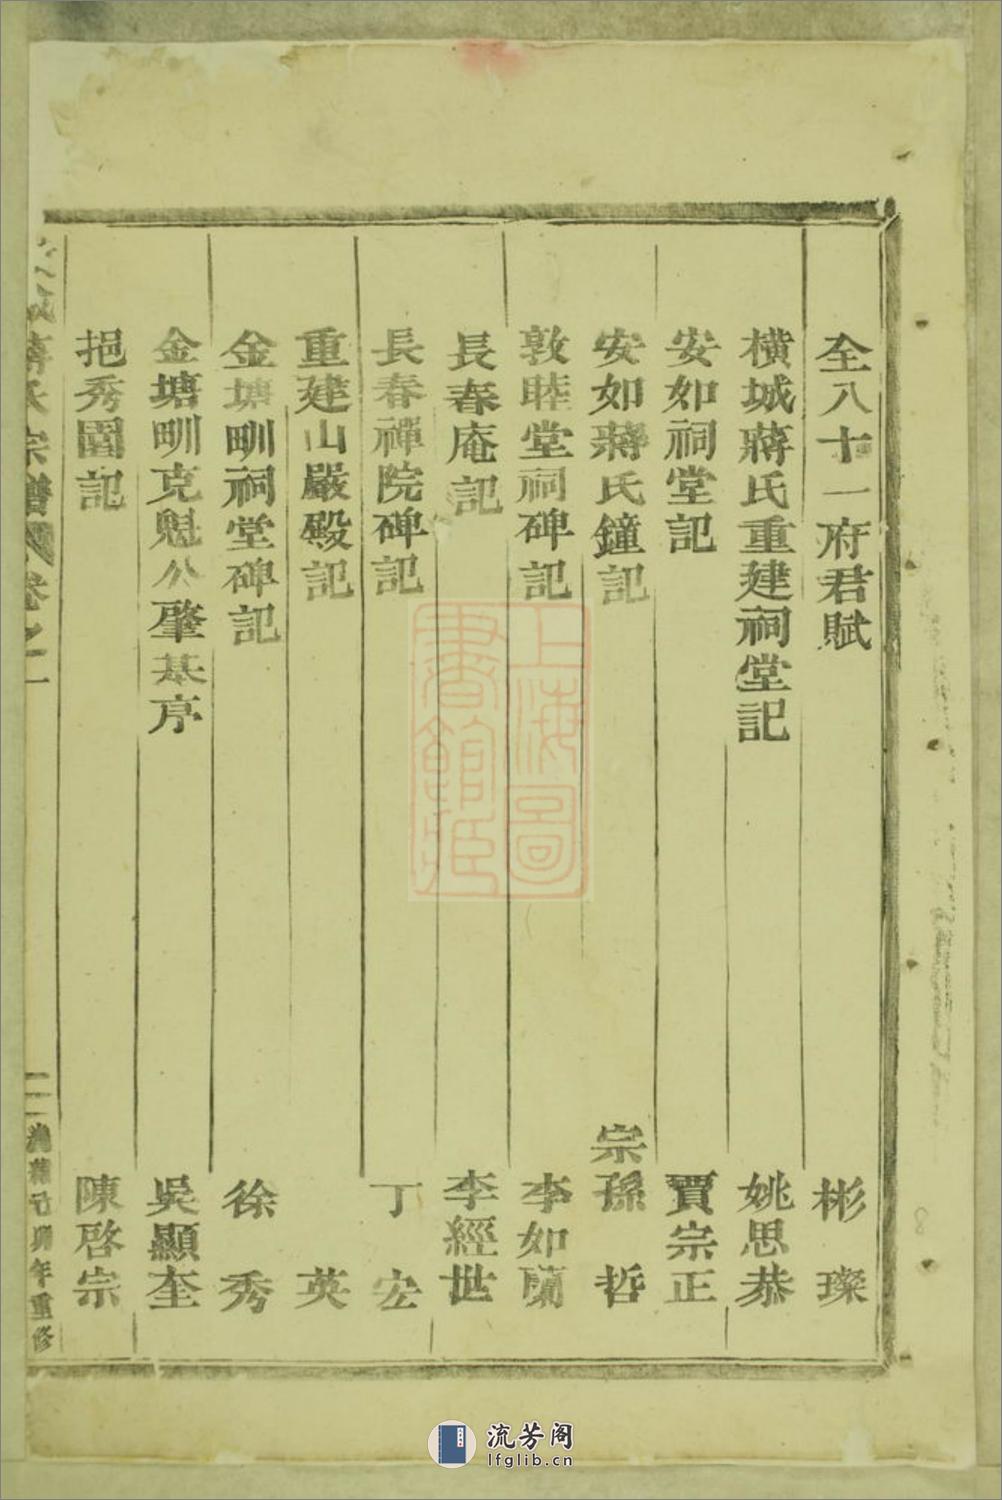 全八十一府君賦 彬璨
橫城蔣氏重建祠堂記 姚思恭
安如祠堂記 賈宗正
安如蔣氏鐘記 宗孫哲
敦睦堂祠碑記 李如蘭
長春庵記 李經世
長春禪院碑記 丁宏
重建山嚴殿記 英
金塘畈祠堂碑記 徐秀
金塘畈克魁公肇基序 吳顯奎
挹秀園記 陳啓宗
蔣氏宗譜 卷之一
年重修
上海圖書館藏
流芳阁
lfglib.cn